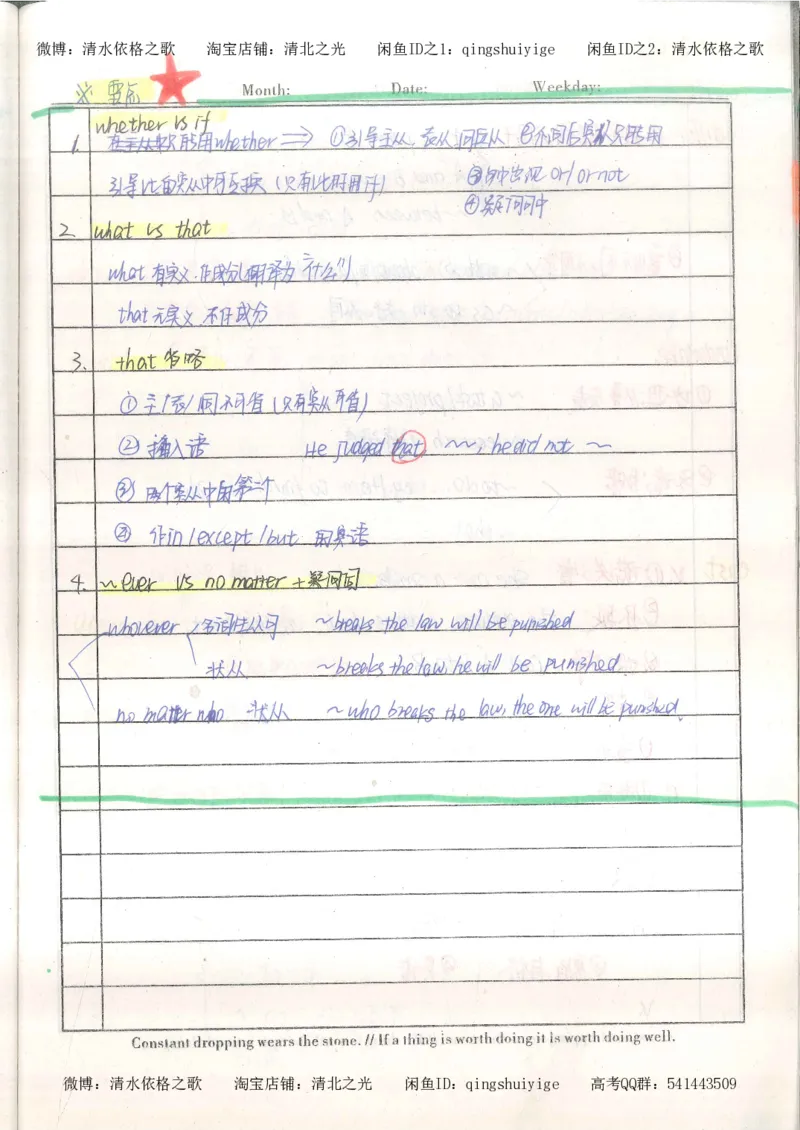 微博：清水依格之歌 淘宝店铺：清北之光 闲鱼ID之1：qingshuiyige 闲鱼ID之2：清水依格之歌
※ 要点
Month: Date: Weekday:
whether vs if
1. 只能用whether ⟹ ①引导主从，表从，同位从 ②介词后宾从只能用
引导 宾从中可互换（只有此时用if） ③句中出现 or/or not
④
2. what vs that
what 有实义，作成分（翻译为"什么"）
that 无实义，不作成分
3. that 省略
① 主/表/同不可省（只有宾从可省）
② 插入语 He judged that ～～，he did not ～
③ 两个宾从中 第二个
④ 作in/except/but 的宾语
4. ～ever vs no matter + 疑问词
whoever 名词性从句 ～breaks the law will be punished
状从 ～breaks the law, he will be punished.
no matter who 状从 ～who breaks the law, the one will be punished.
Constant dropping wears the stone. // If a thing is worth doing it is worth doing well.
微博：清水依格之歌 淘宝店铺：清北之光 闲鱼ID：qingshuiyige 高考QQ群：541443509